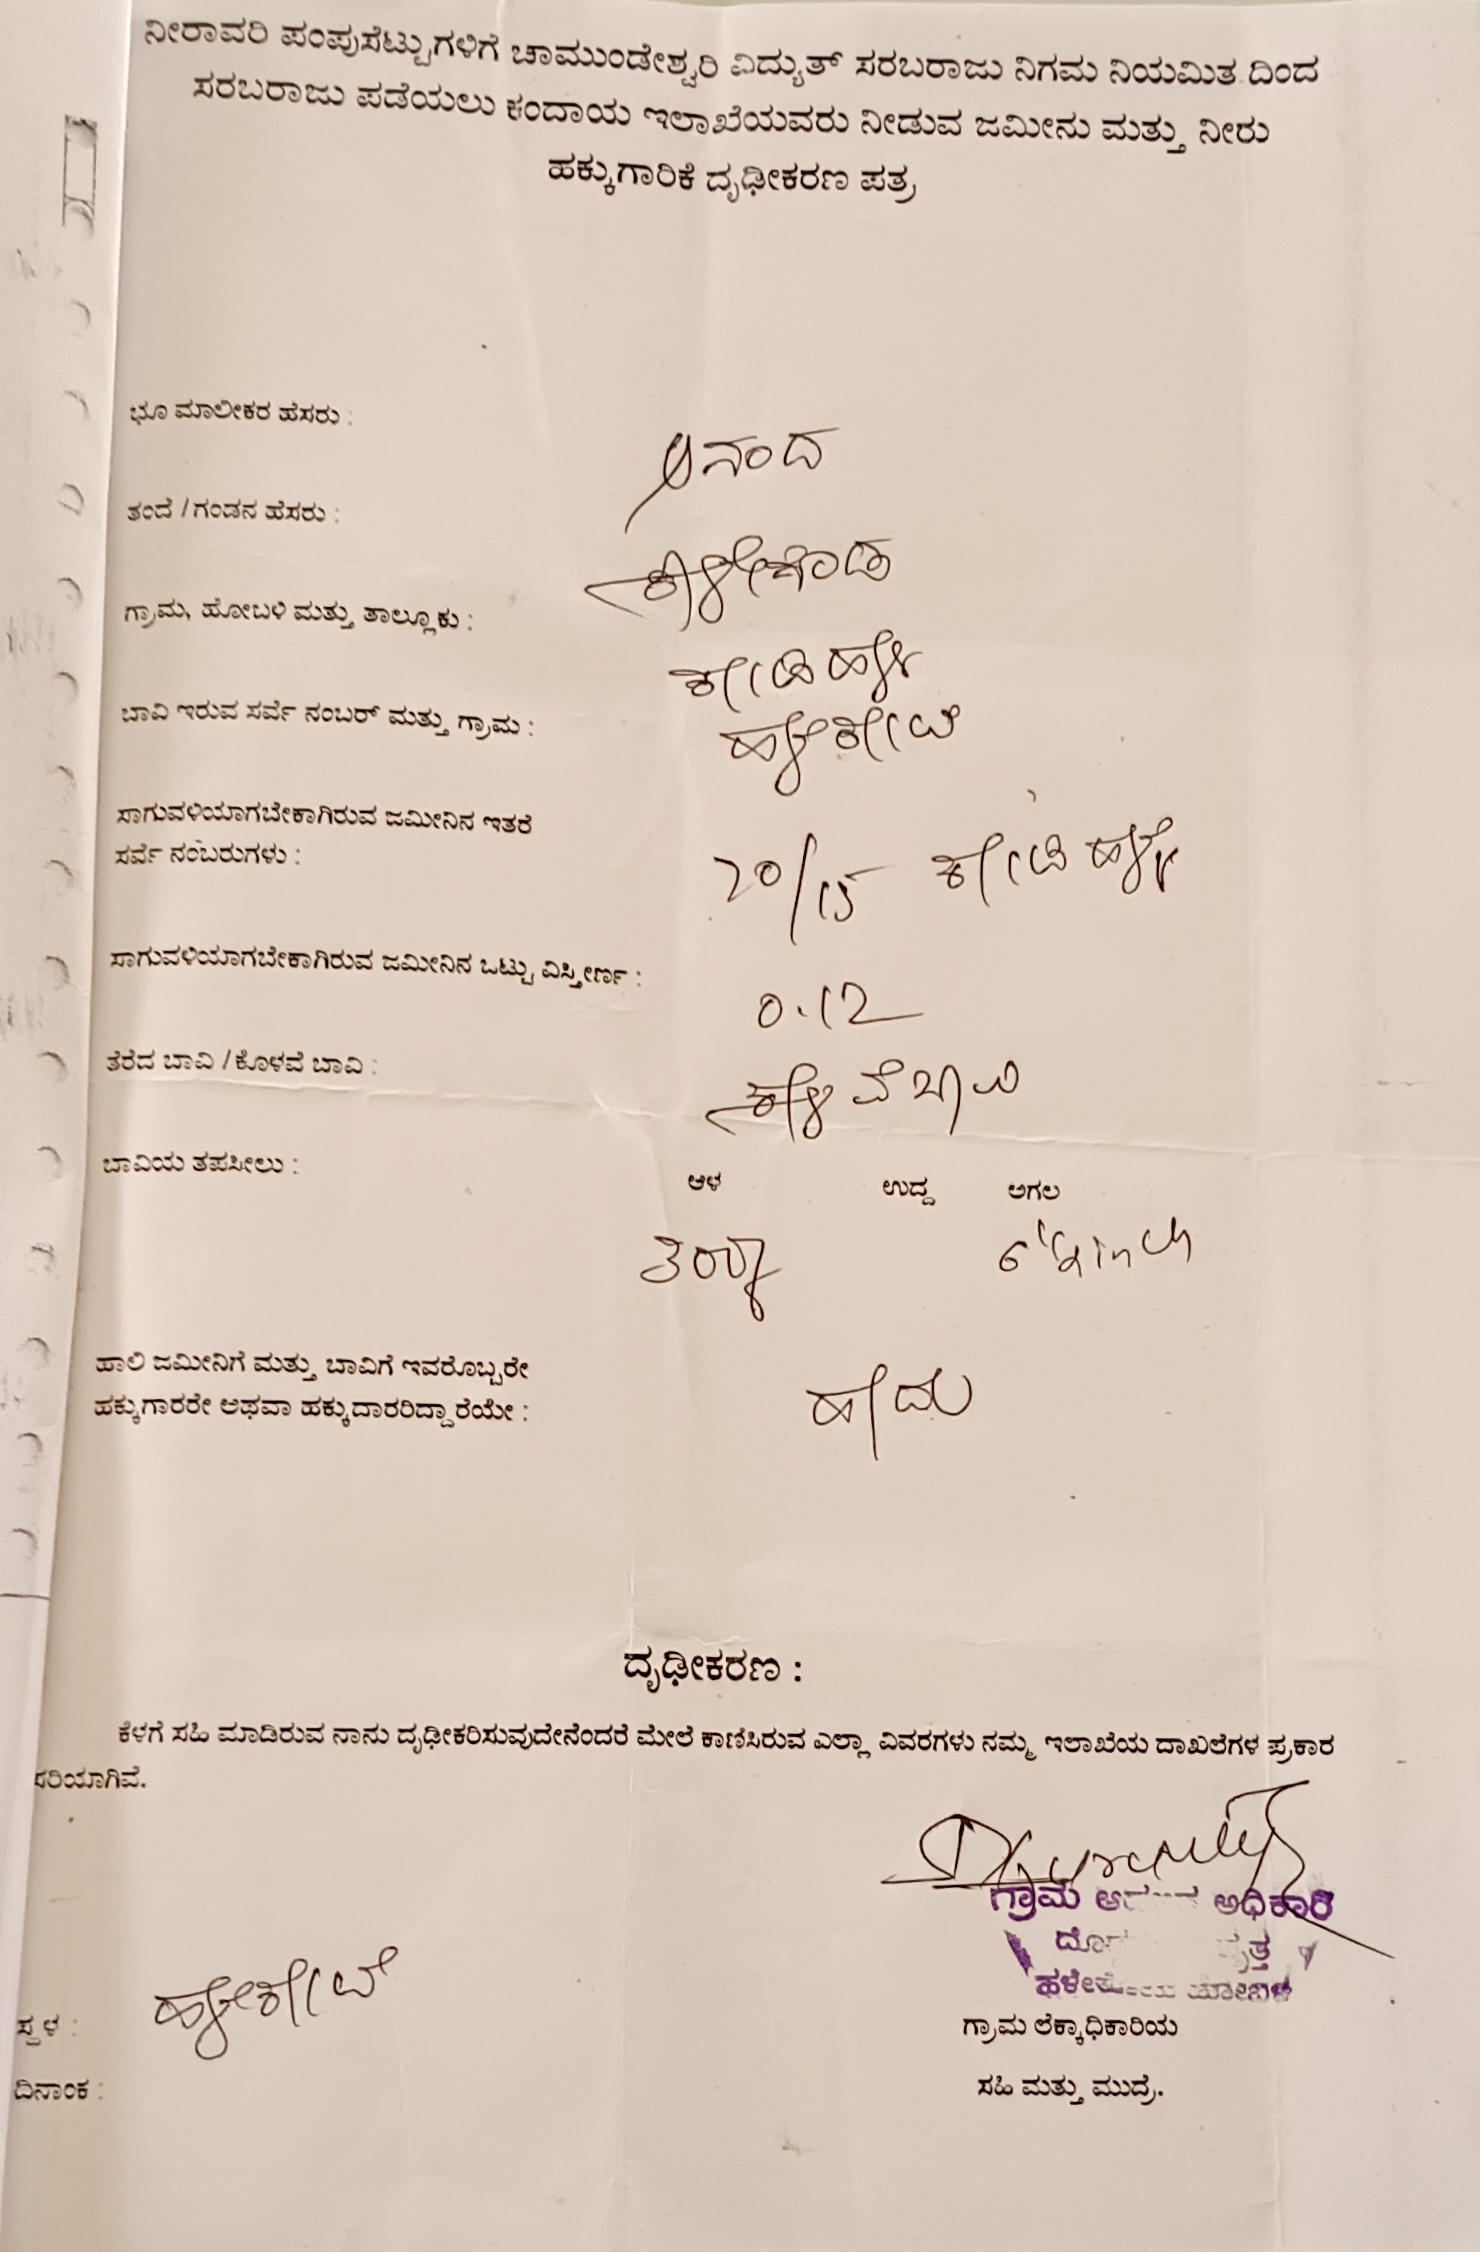 ನೀರಾವರಿ ಪಂಪುಸೆಟ್ಟುಗಳಿಗೆ ಚಾಮುಂಡೇಶ್ವರಿ ವಿದ್ಯುತ್ ಸರಬರಾಜು ನಿಗಮ ನಿಯಮಿತ ದಿಂದ
ಸರಬರಾಜು ಪಡೆಯಲು ಕಂದಾಯ ಇಲಾಖೆಯವರು ನೀಡುವ ಜಮೀನು ಮತ್ತು ನೀರು
ಹಕ್ಕುಗಾರಿಕೆ ದೃಢೀಕರಣ ಪತ್ರ
ಭೂ ಮಾಲೀಕರ ಹೆಸರು :
ಆನಂದ
ತಂದೆ / ಗಂಡನ ಹೆಸರು :
ಗ್ರಾಮ, ಹೋಬಳಿ ಮತ್ತು ತಾಲ್ಲೂಕು :
ಕೋಡಿಹಳ್ಳಿ
ಬಾವಿ ಇರುವ ಸರ್ವೆ ನಂಬರ್ ಮತ್ತು ಗ್ರಾಮ :
ಹಳೇಕೋಟೆ
ಸಾಗುವಳಿಯಾಗಬೇಕಾಗಿರುವ ಜಮೀನಿನ ಇತರೆ
ಸರ್ವೆ ನಂಬರುಗಳು :
20/15 ಕೋಡಿಹಳ್ಳಿ
ಸಾಗುವಳಿಯಾಗಬೇಕಾಗಿರುವ ಜಮೀನಿನ ಒಟ್ಟು ವಿಸ್ತೀರ್ಣ :
0.12
ತೆರೆದ ಬಾವಿ / ಕೊಳವೆ ಬಾವಿ :
ಕೊಳವೆ ಬಾವಿ
ಬಾವಿಯ ತಪಸೀಲು :
ಆಳ ಉದ್ದ ಅಗಲ
inch
ಹಾಲಿ ಜಮೀನಿಗೆ ಮತ್ತು ಬಾವಿಗೆ ಇವರೊಬ್ಬರೇ
ಹಕ್ಕುಗಾರರೇ ಅಥವಾ ಹಕ್ಕುದಾರರಿದ್ದಾರೆಯೇ :
ಹೌದು
ದೃಢೀಕರಣ :
ಕೆಳಗೆ ಸಹಿ ಮಾಡಿರುವ ನಾನು ದೃಢೀಕರಿಸುವುದೇನೆಂದರೆ ಮೇಲೆ ಕಾಣಿಸಿರುವ ಎಲ್ಲಾ ವಿವರಗಳು ನಮ್ಮ ಇಲಾಖೆಯ ದಾಖಲೆಗಳ ಪ್ರಕಾರ
ಸರಿಯಾಗಿವೆ.
ಗ್ರಾಮ ಅಧಿಕಾರಿ
ವೃತ್ತ
ಸ್ಥಳ : ಹಳೇಕೋಟೆ
ಗ್ರಾಮ ಲೆಕ್ಕಾಧಿಕಾರಿಯ
ದಿನಾಂಕ :
ಸಹಿ ಮತ್ತು ಮುದ್ರೆ.